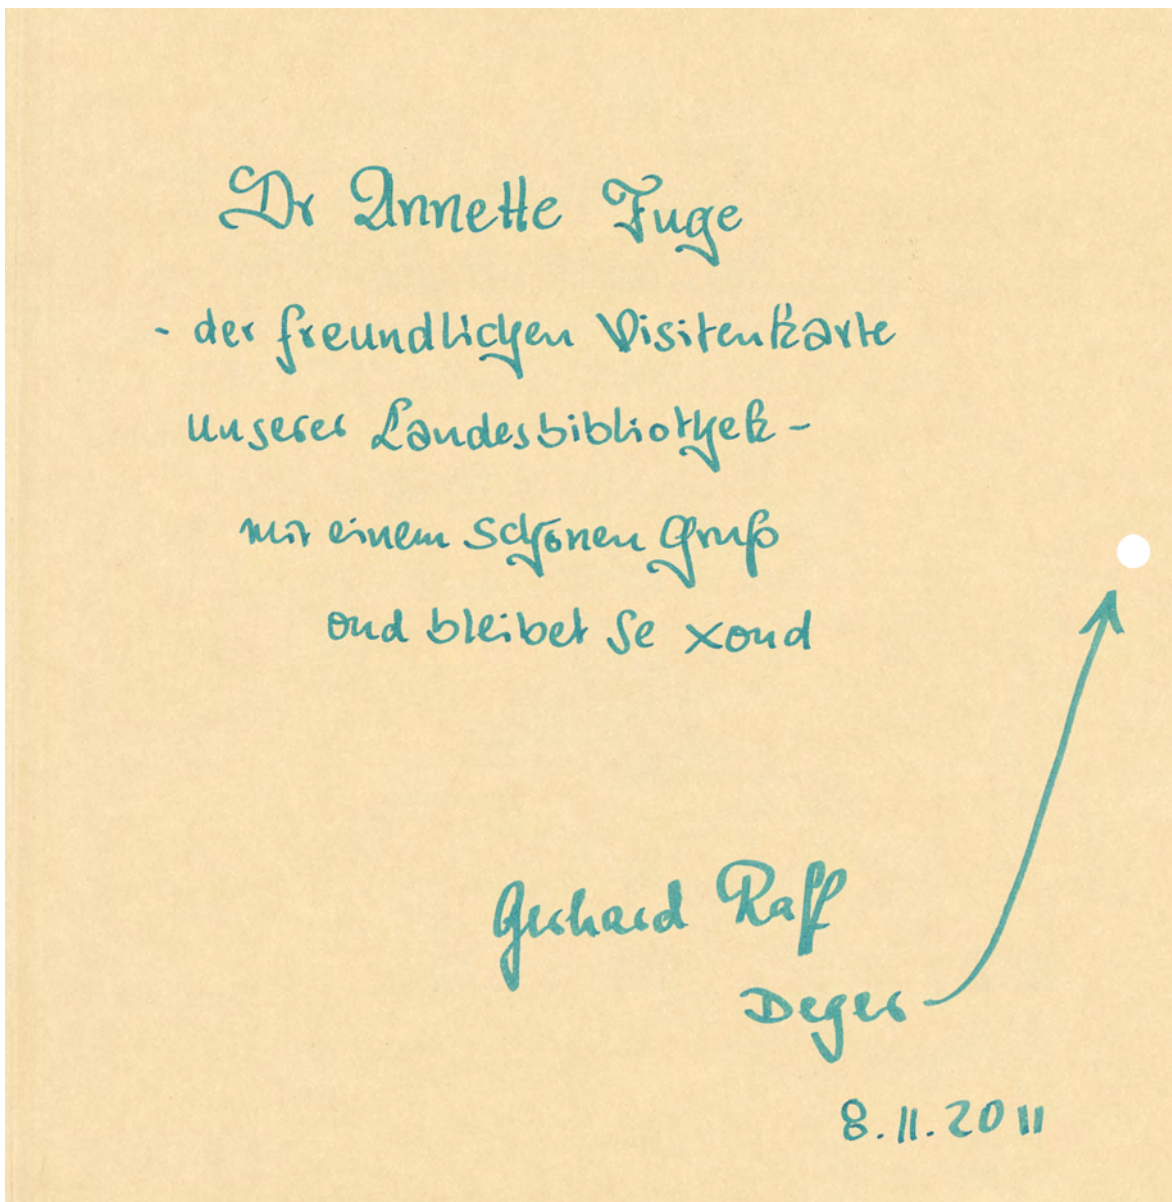 Dr Annette Fuge
- der freundlichen Visitenkarte
unserer Landesbibliothek -
mit einem schönen Gruß
ond bleibet Se xond
Gerhard Raff
Deger
8.11.2011